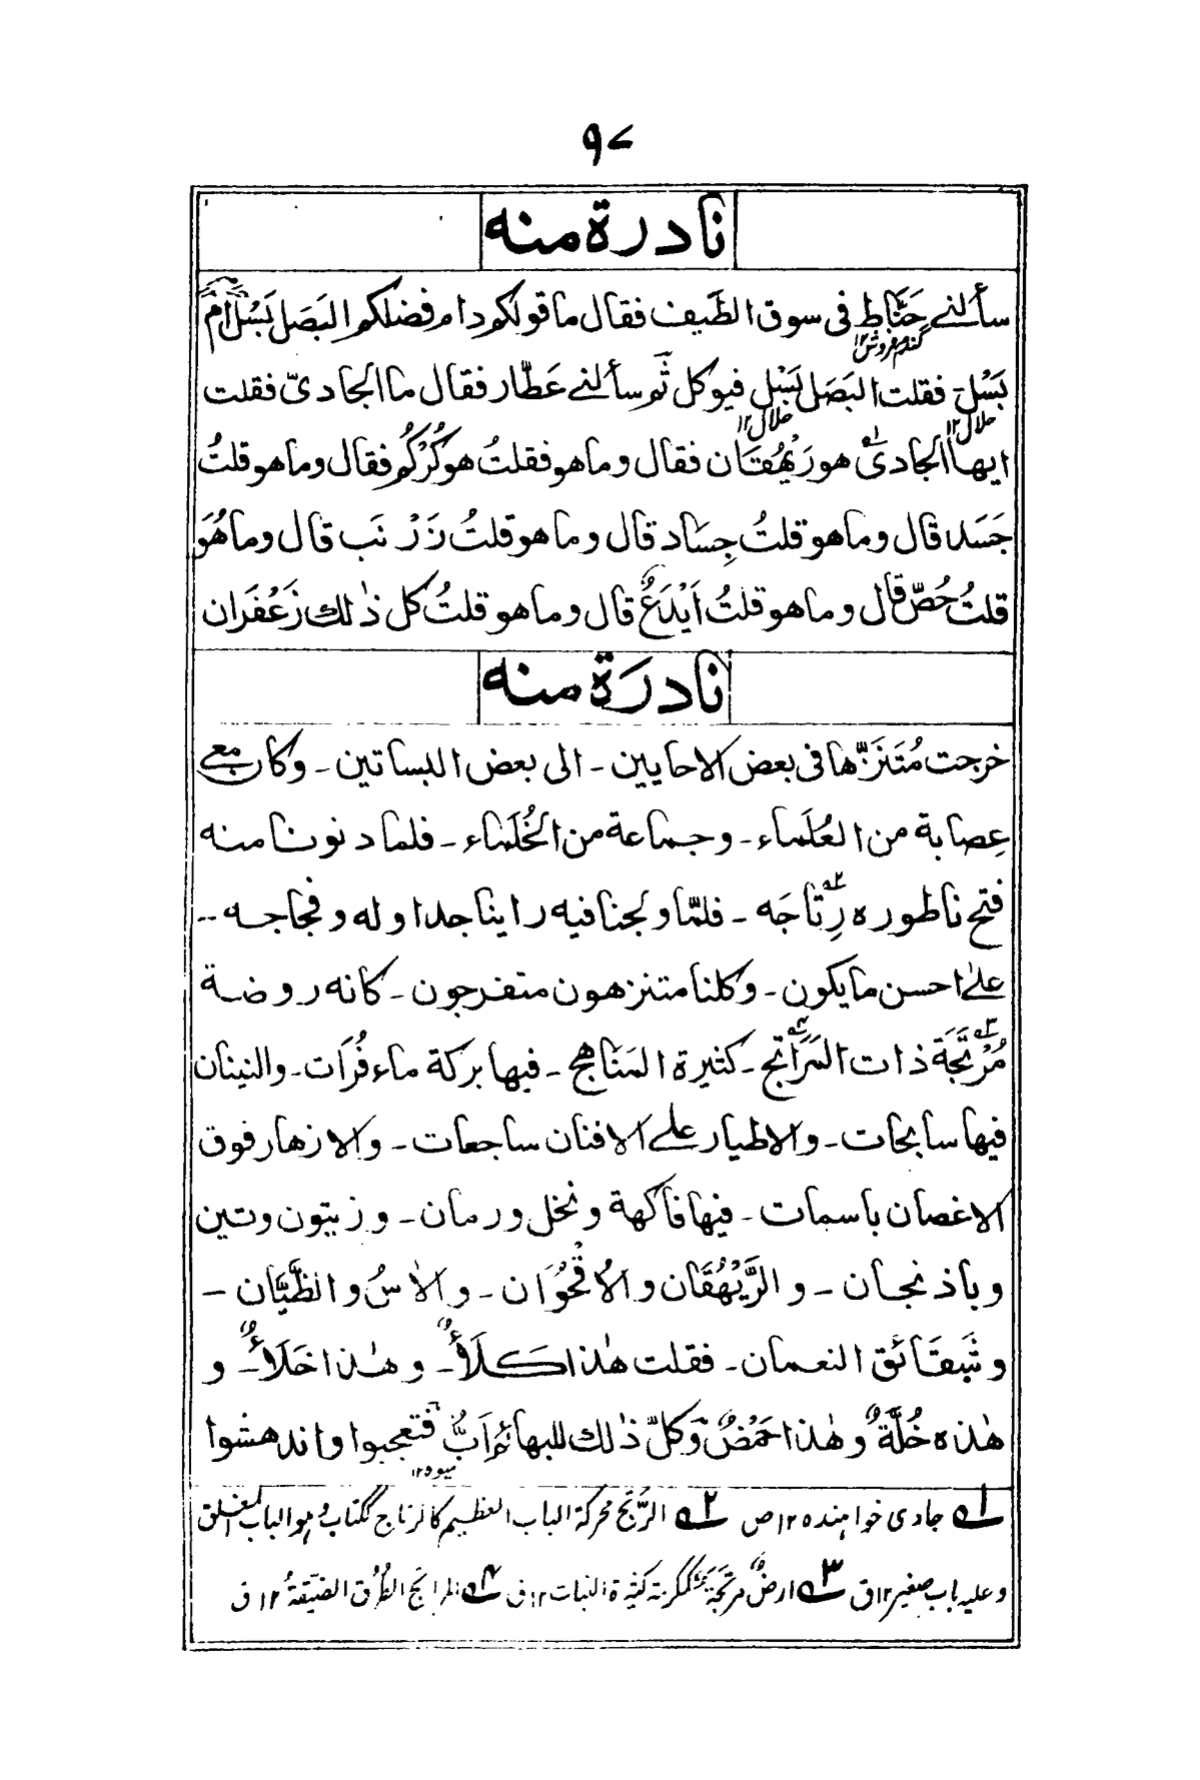 ۹۷
نادرة منه
سألنے حَنَّاط فى سوق الطَّيف فقال ما قولكم دام فضلكم البَصَل بَسْلٌ اَمْ
گندم فروش۱۲
بَسْل فقلت البَصَل بَسْل فيوكل ثم سألنے عَطّار فقال ما الجادىّ فقلت
حلال۱۲ حلال۱۲
ايها الجادى هو رَيْهُقَان فقال وما هو فقلتُ هو كُرْكُم فقال وما هو قلتُ
جَسَد قال وما هو قلتُ جِسَاد قال وما هو قلتُ زَرْنَب قال وما هُوَ
قلتُ حُصّ قال وما هو قلتُ اَيْدَعٌ قال وما هو قلتُ كل ذٰلك زَعْفَران
نادرَة منه
خرجت مُتَنَزِّها فى بعض الاحايين ۔ الى بعض البساتين ۔ وكان معے
عِصابة من العُلَماء ۔ وجماعة من الخُلَماء ۔ فلما دنونا منه
فتح ناطوره رِتاجَه ۔ فلمّا ولجنا فيه راينا جداوله وفجاجه ۔۔
علےٰ احسن ما يكون ۔ وكلنا متنزهون متفرجون ۔ كانه روضة
مُرْتَجَة ذات المَرَاتج ۔ كثيرة المَناهج ۔ فيها بركة ماء فُرَات ۔ والنينان
فيها سابحات ۔ والاطيار علے الافنان ساجعات ۔ والازهار فوق
الاغصان باسمات ۔ فيها فاكهة ونخل ورمان ۔ وزيتون وتين
وباذنجان ۔ والرَّيْهُقَان والاُقْحُوَان ۔ والاٰسُ والظَّيَّان ۔
وشَقَائق النعمان ۔ فقلت هٰذا كَلَأٌ ۔ وهٰذا خَلَأٌ ۔ و
هٰذه خُلَّةٌ وهٰذا حَمْضٌ وكلّ ذٰلك للبهائم اَبٌّ فتعجبوا واندهشوا
ميوه۱۲
۱ جادى خواہنده ۱۲ ص ۲ الرَّتَج محركة الباب العظيم كالرتاج ككتاب وهو الباب المغلق
وعليه باب صغير ۱۲ق ۳ ارضٌ مرتجة كمكرمة كثيرة النبات ۱۲ق ۴ المراتج الطُّرُق الضيّقةُ ۱۲ ق